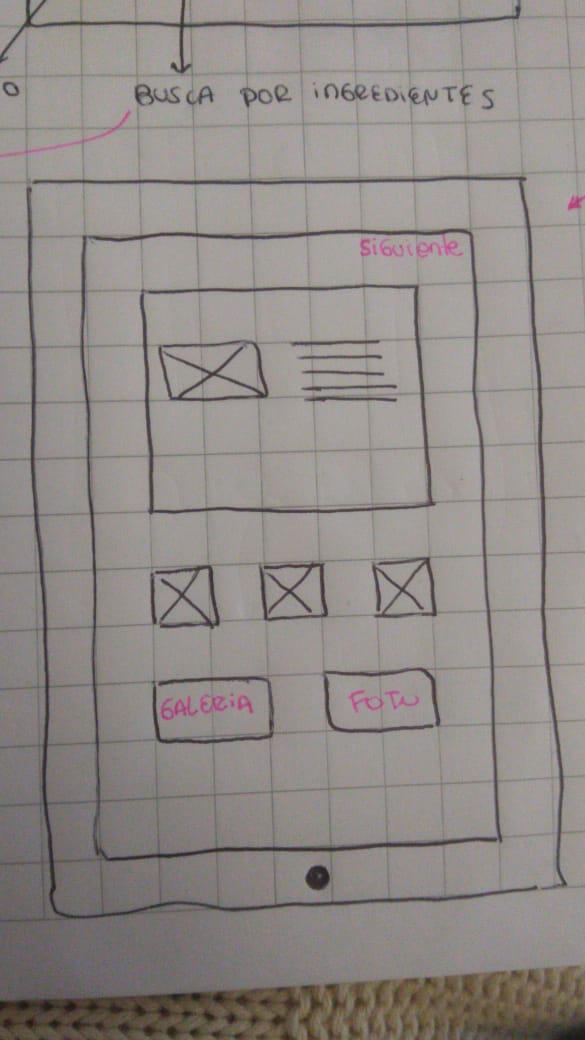 O
BUSCA POR INGREDIENTES
Siguiente
GALERIA
FOTO